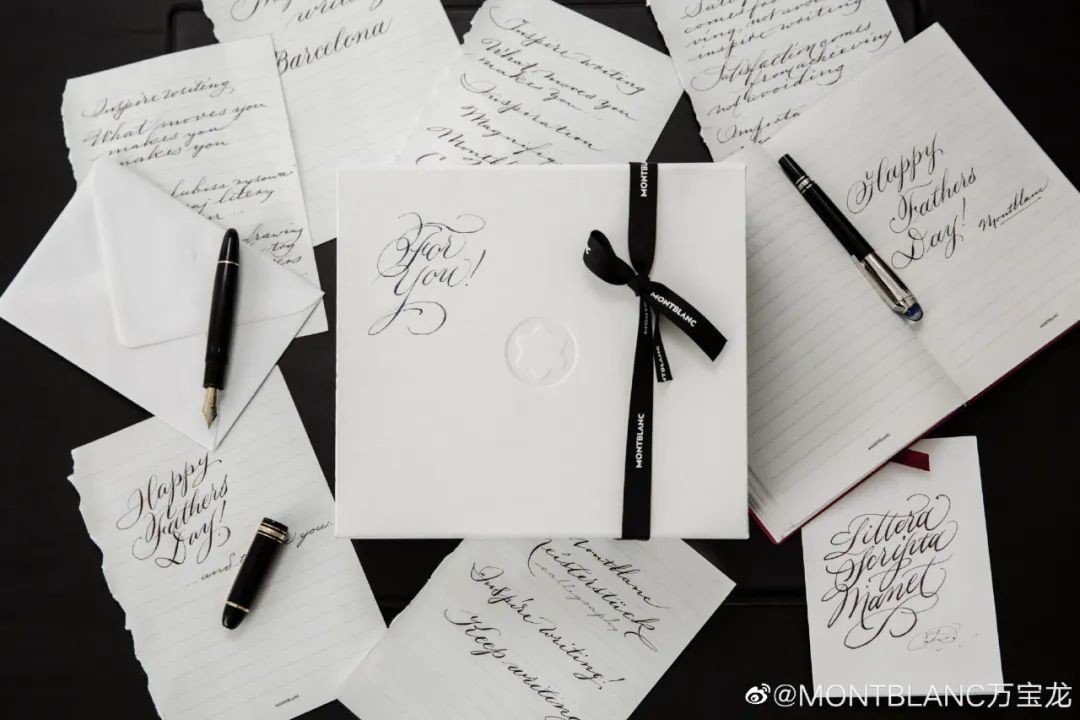 writing
Barcelona
Inspire writing,
What moves you
makes you
makes you
Inspire writing
What Moves you
makes you...
Inspiration
inspire writing
Satisfaction comes
from achieving
not avoiding
For
You!
MONTBLANC
MONTBLANC
MONTBLANC
MONTBLANC
Happy
Fathers
Day!
Montblanc
MONTBLANC
MONTBLANC
Happy
Fathers
Day!
you.
MONTBLANC
Montblanc
Meisterstück
calligraphy
Inspire writing!
Keep writing
Littera
Scripta
Manet
@MONTBLANC万宝龙